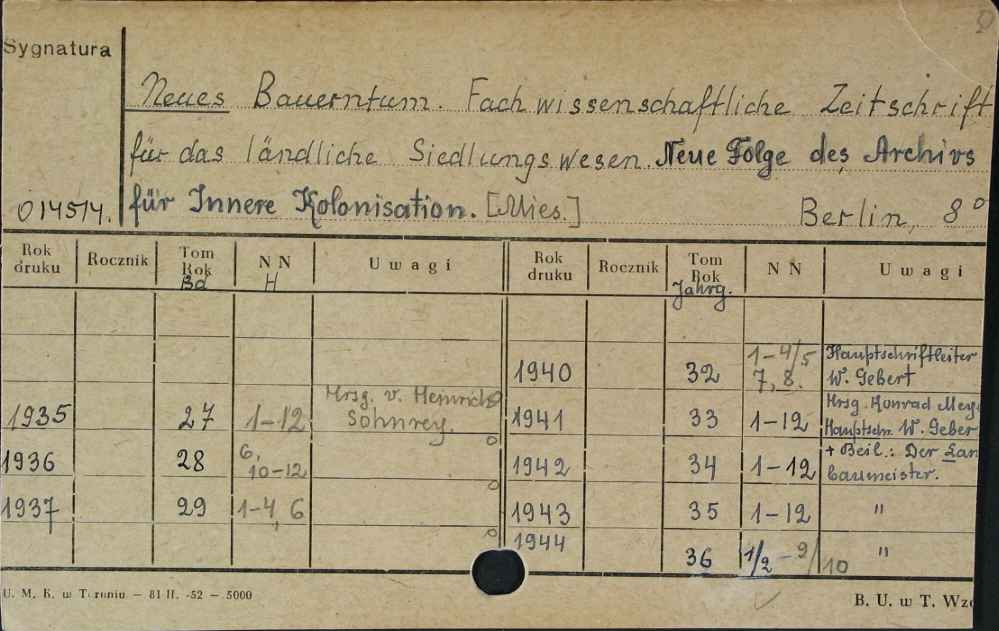 Sygnatura
Neues Bauerntum. Fachwissenschaftliche Zeitschrift
für das ländliche Siedlungswesen. Neue Folge des Archivs
014514. für Innere Kolonisation. [Mies.] Berlin, 8°
Rok druku Rocznik Tom Rok Bd NN H Uwagi Rok druku Rocznik Tom Rok Jahrg. NN Uwagi
1940 32 1-4/5 7, 8. Hauptschriftleiter W. Gebert
1935 27 1-12 Hrsg. v. Heinrich Sohnrey. 1941 33 1-12 Hrsg. Konrad Mey Hauptschr. W. Geber
1936 28 6, 10-12 1942 34 1-12 + Beil.: Der Lan baumeister.
1937 29 1-4, 6 1943 35 1-12 "
1944 36 1/2-9/10 "
U. M. K. w Toruniu — 81 II. -52 — 5000 B. U. w T. Wzó